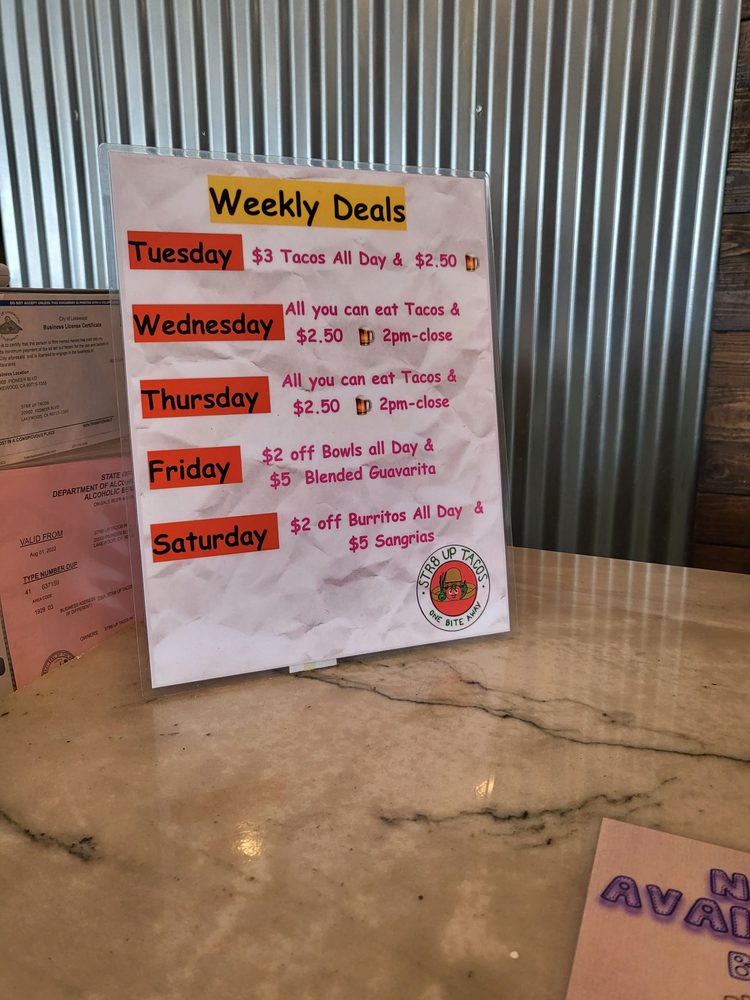 Weekly Deals
Tuesday $3 Tacos All Day & $2.50
Wednesday All you can eat Tacos &
$2.50 2pm-close
Thursday All you can eat Tacos &
$2.50 2pm-close
Friday $2 off Bowls all Day &
$5 Blended Guavarita
Saturday $2 off Burritos All Day &
$5 Sangrias
STR8 UP TACOS
ONE BITE AWAY
City of Lakewood
Business License Certificate
STR8 UP TACOS
20900 PIONEER BLVD
LAKEWOOD, CA 90715
STATE
DEPARTMENT OF
ALCOHOLIC
VALID FROM
Aug 01, 2022
TYPE NUMBER DUP
41
AREA CODE
1929 03
BUSINESS ADDRESS
(IF DIFFERENT)
OWNERS: STR8 UP